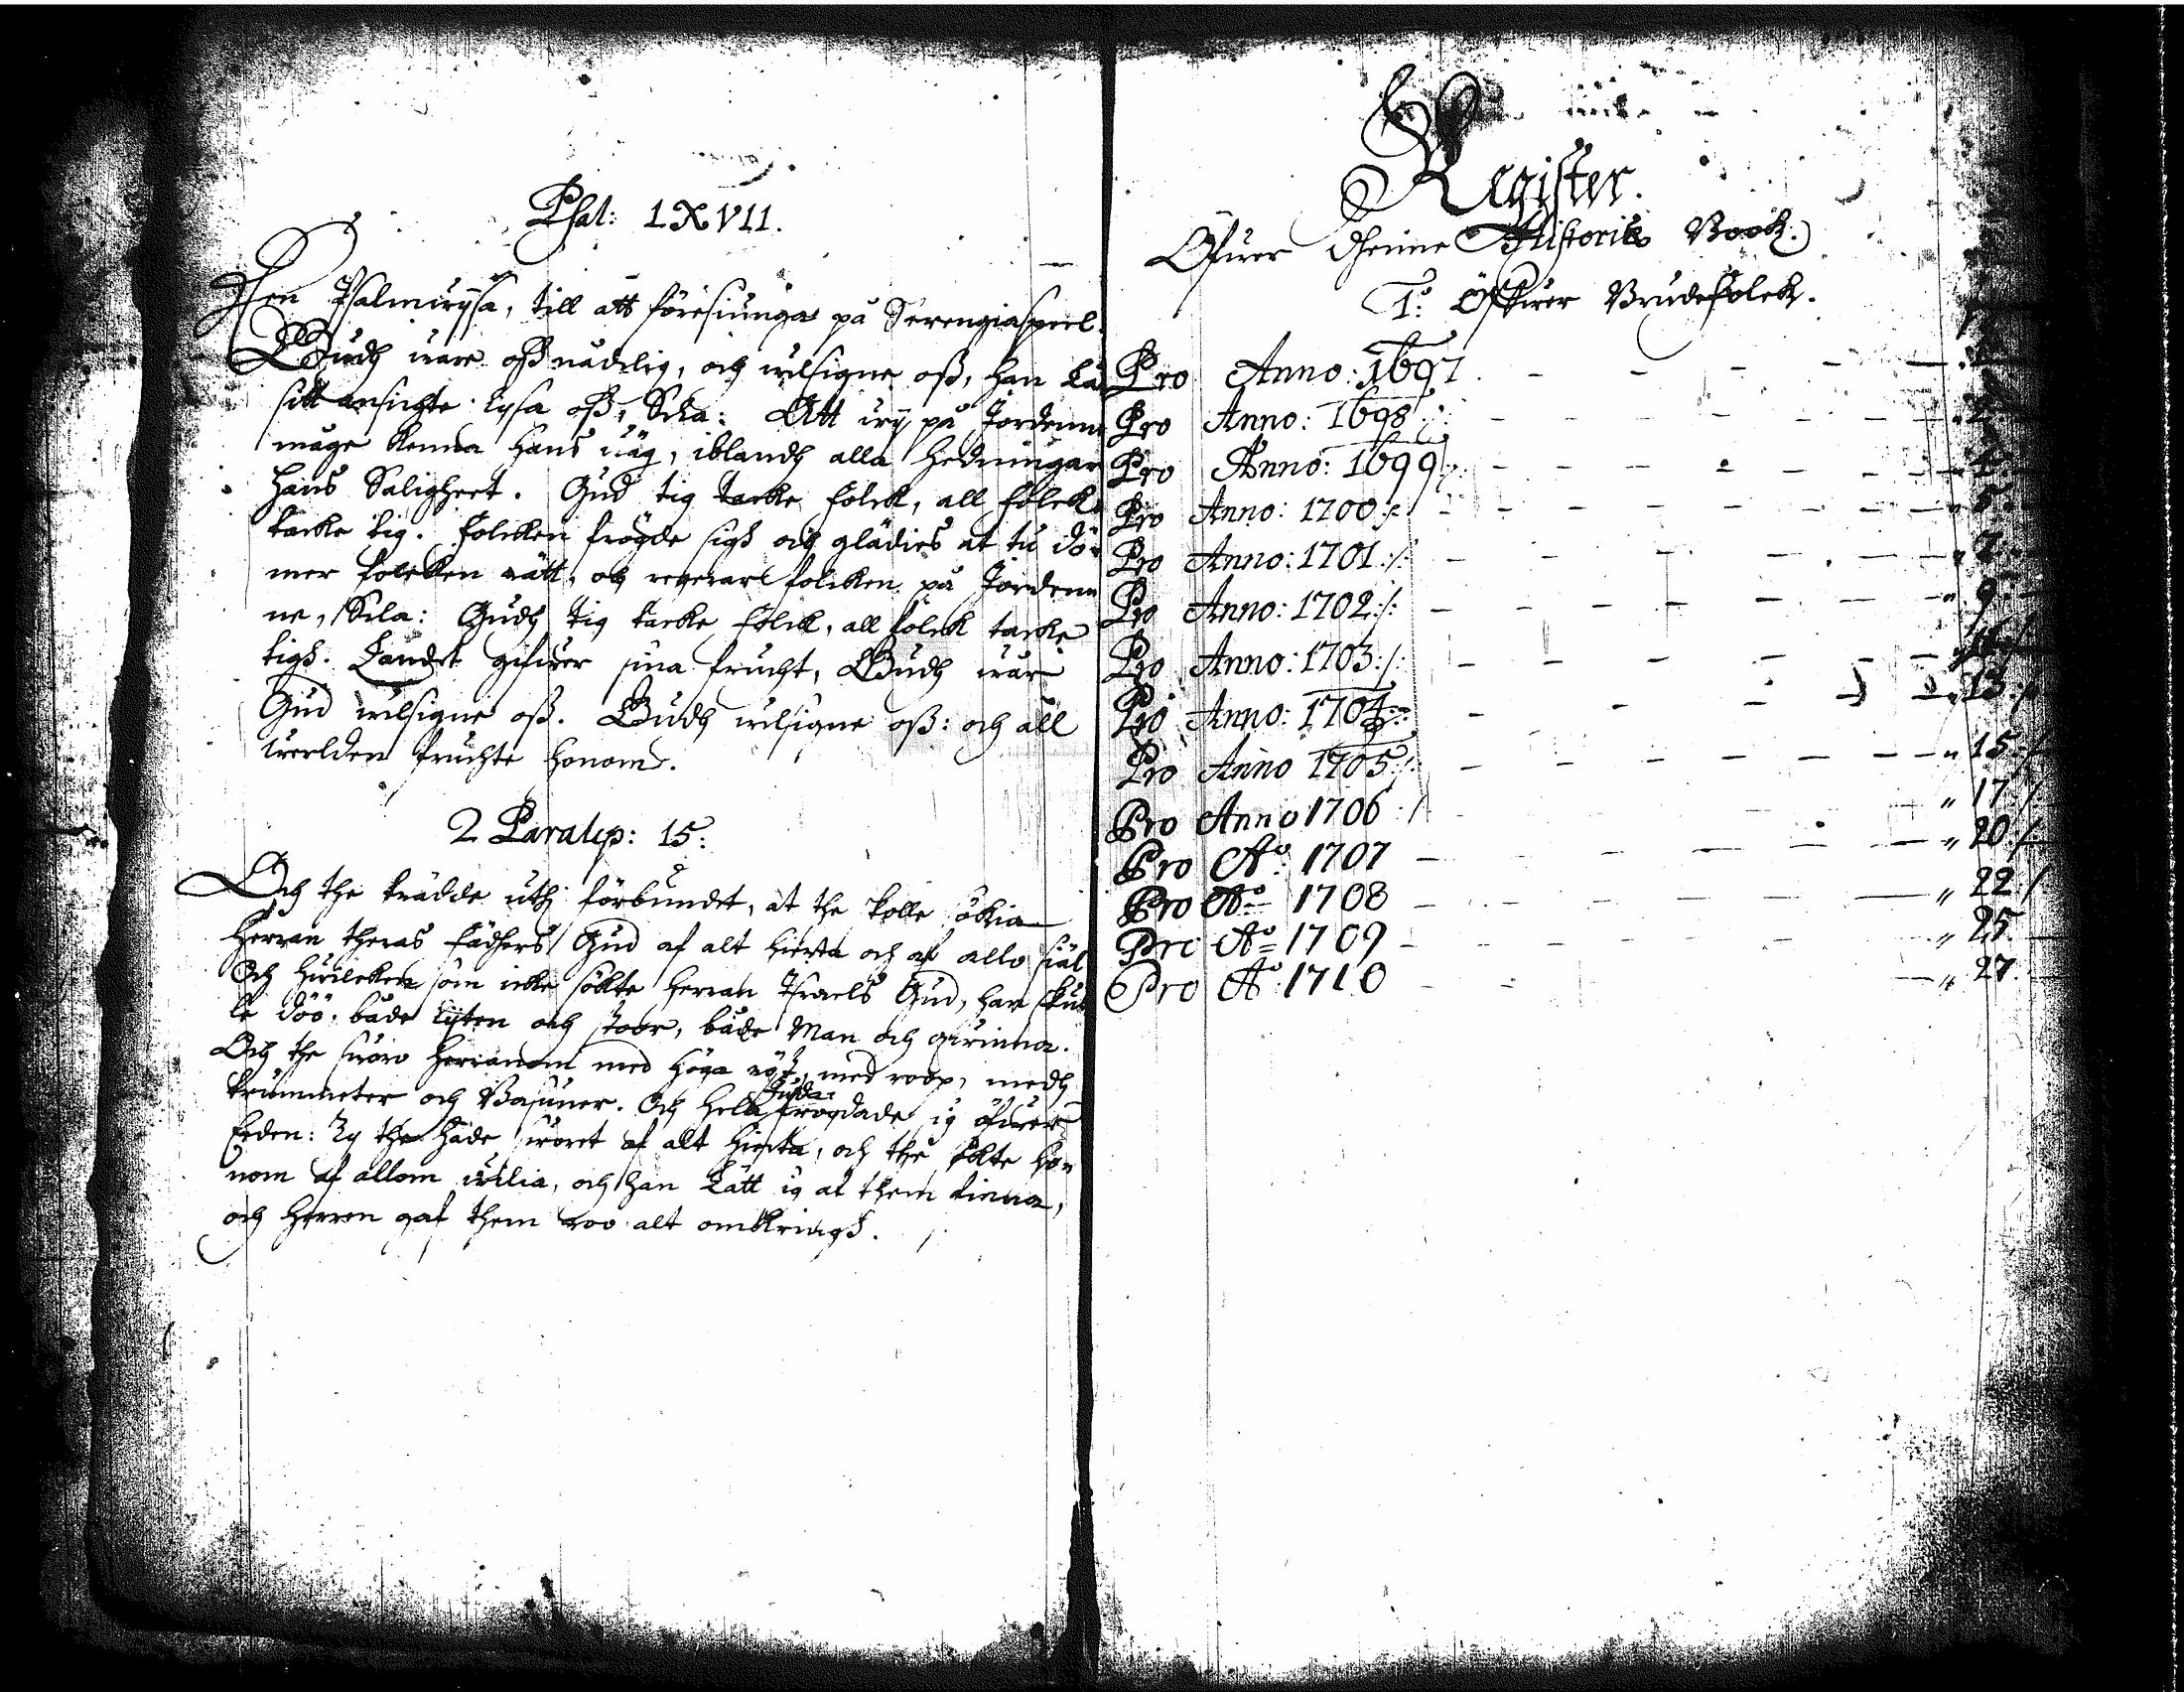 Psal: LXVII.
Een Psalmwysa, till att föresiunga på Strengiaspeel.
Gudh ware oss nådelig, och wälsigne oss, han Lå
sitt ansichte lysa oss, Sela: Att wij på Jordenne
måge kenna hans wäg, iblandh alla Hedningar
hans Saligheet. Gud tig tacke folck, all folck
tacke tig. Folcken frögde sigh och glädies at tu dö-
mer folcken rätt, och regerar folcken på Jorden-
ne, Sela: Gudh tig tacke folck, all folck tacke
tigh. Landet gifwer sina frucht, Gudh wår
Gud wälsigne oss. Gudh wälsigne oss: och all
werlden fruchte honom.
2 Paralip: 15:
Och the trädde uthi förbundet, at the skolle sökia
Herran theras fädhers Gud af alt hierta och af allo siäl
Och hwilcken som icke sökte Herran Israels Gud, han skul
le döö, både lijten och stoor, både Man och qwinna.
Och the swöro Herranom med höga röst, med roop, medh
trummeter och Basuner. Och hela Juda frögdade sig öfwer
Eeden: Ty the hade sworet af alt hierta, och the sökte ho-
nom af allom wilia, och han Lätt sig af them finna,
och Herren gaf them roo alt omkringh.
Register.
Öfwer Thenne Historiæ Book.
1:o Öfwer Brudefolck.
Pro Anno: 1697. - - - - - 1
Pro Anno: 1698 ./. - - - - - 2
Pro Anno: 1699 ./. - - - - - 4
Pro Anno: 1700 ./. - - - - - 5.
Pro Anno: 1701 ./. - - - - - 7.
Pro Anno: 1702 ./. - - - - - 9.
Pro Anno: 1703 ./. - - - - -
Pro Anno: 1704 ./. - - - - - 13 ./.
Pro Anno 1705 ./. - - - - - 15 ./.
Pro Anno 1706 ./. - - - - - 17 ./.
Pro Ao: 1707 - - - - - 20 ./.
Pro Ao: 1708 - - - - - 22 ./.
Pro Ao: 1709 - - - - - 25.
Pro Ao: 1710 - - - - - 27.